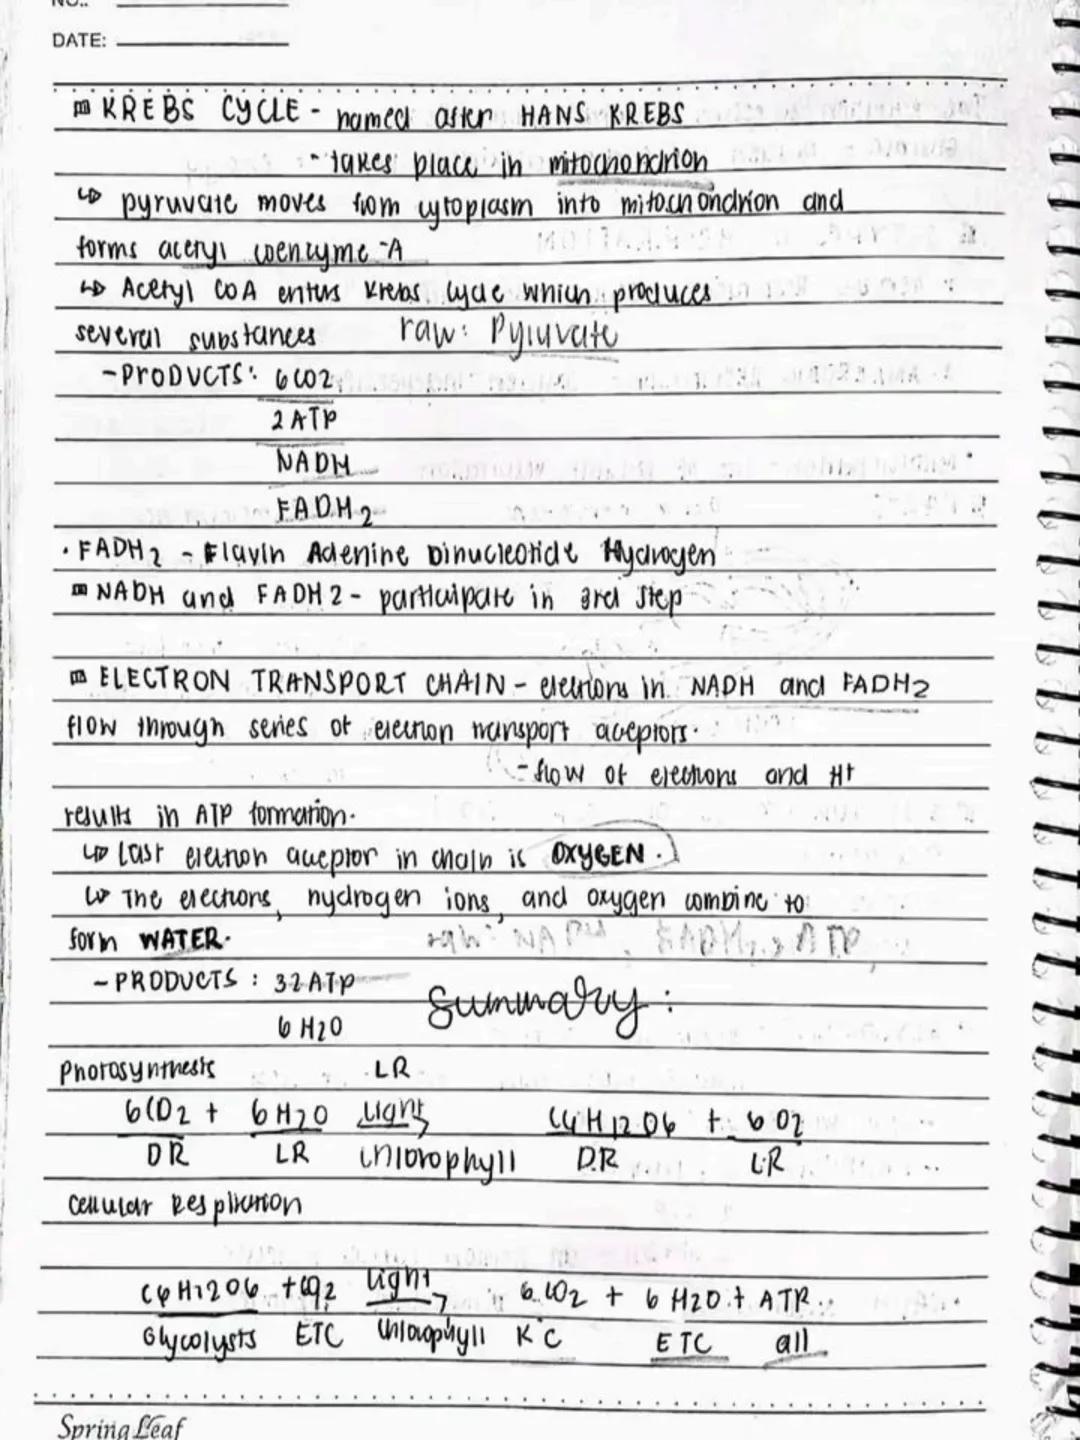 NO.:
DATE:
KREBS CYCLE - named after HANS KREBS
- takes place in mitochondrion
↳ pyruvate moves from cytoplasm into mitochondrion and
forms acetyl coenzyme -A
↳ Acetyl CoA enters Krebs cycle which produces
several substances raw: Pyruvate
- PRODUCTS: 6CO2
2 ATP
NADH
FADH2
· FADH2 - Flavin Adenine Dinucleotide Hydrogen
NADH and FADH2 - participate in 3rd step
ELECTRON TRANSPORT CHAIN - electrons in NADH and FADH2
flow through series of electron transport acceptors.
- flow of electrons and H+
results in ATP formation.
↳ Last electron acceptor in chain is OXYGEN.
↳ The electrons, hydrogen ions, and oxygen combine to
form WATER. raw: NADH, FADH2,
- PRODUCTS: 32 ATP
6 H2O
Summary:
Photosynthesis LR
6CO2 + 6H2O Light C6H12O6 + 6O2
DR LR chlorophyll D.R L.R
Cellular Respiration
C6H12O6 + 6O2 Light 6CO2 + 6H2O + ATP
Glycolysts ETC chlorophyll KC ETC all
Spring Leaf